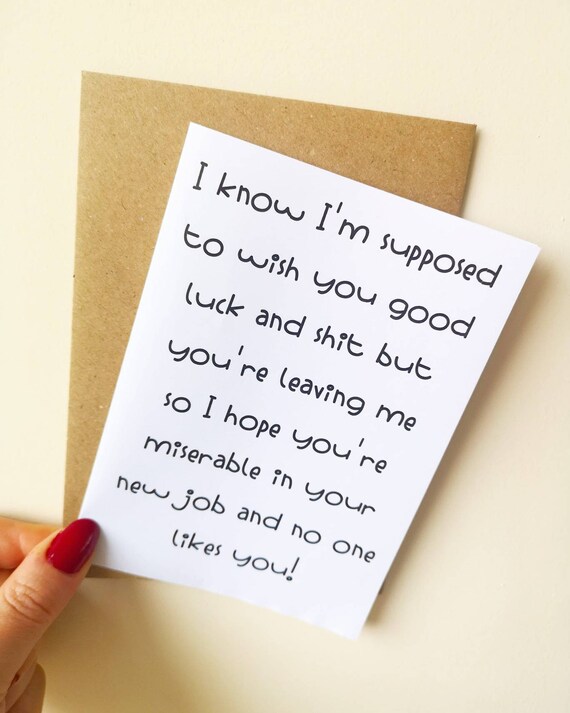 I know I'm supposed
to wish you good
luck and shit but
you're leaving me
so I hope you're
miserable in your
new job and no one
likes you!